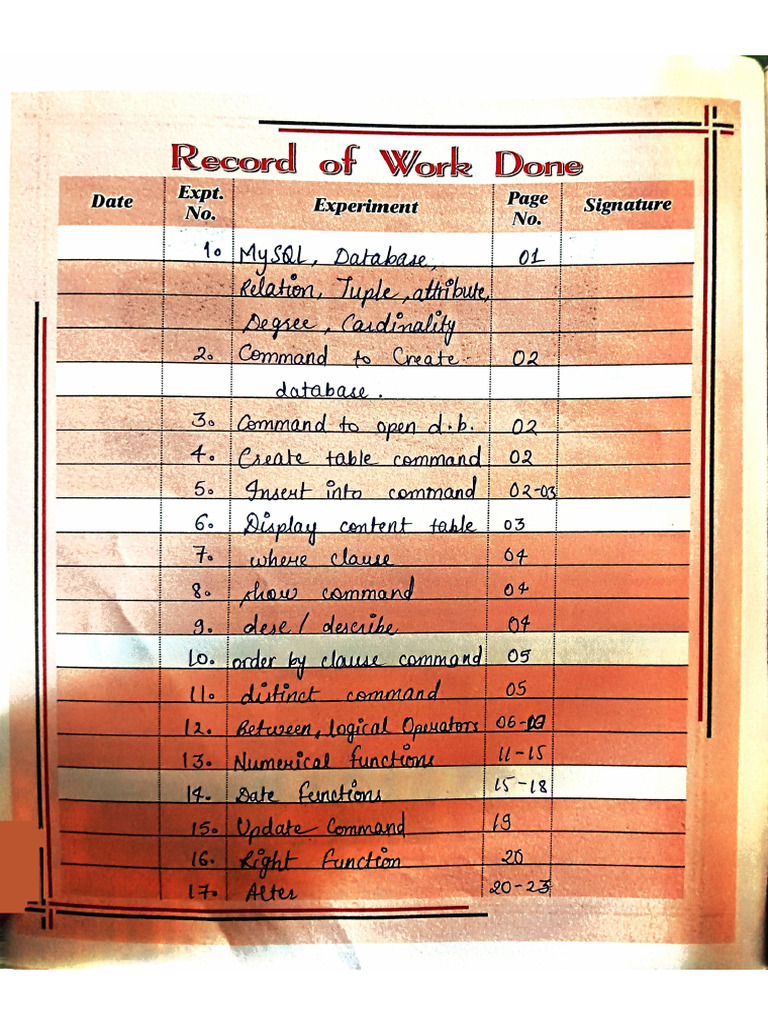 Record of Work Done
Date Expt. No. Experiment Page No. Signature
1. MySQL, Database, 01
Relation, Tuple, attribute,
Degree, Cardinality
2. Command to Create 02
database.
3. Command to open d.b. 02
4. Create table command 02
5. Insert into command 02-03
6. Display content table 03
7. where clause 04
8. show command 04
9. desc / describe 04
10. order by clause command 05
11. distinct command 05
12. Between, logical Operators 06-
13. Numerical functions 11-15
14. Date functions 15-18
15. Update Command 19
16. Right function 20
17. Alter 20-23